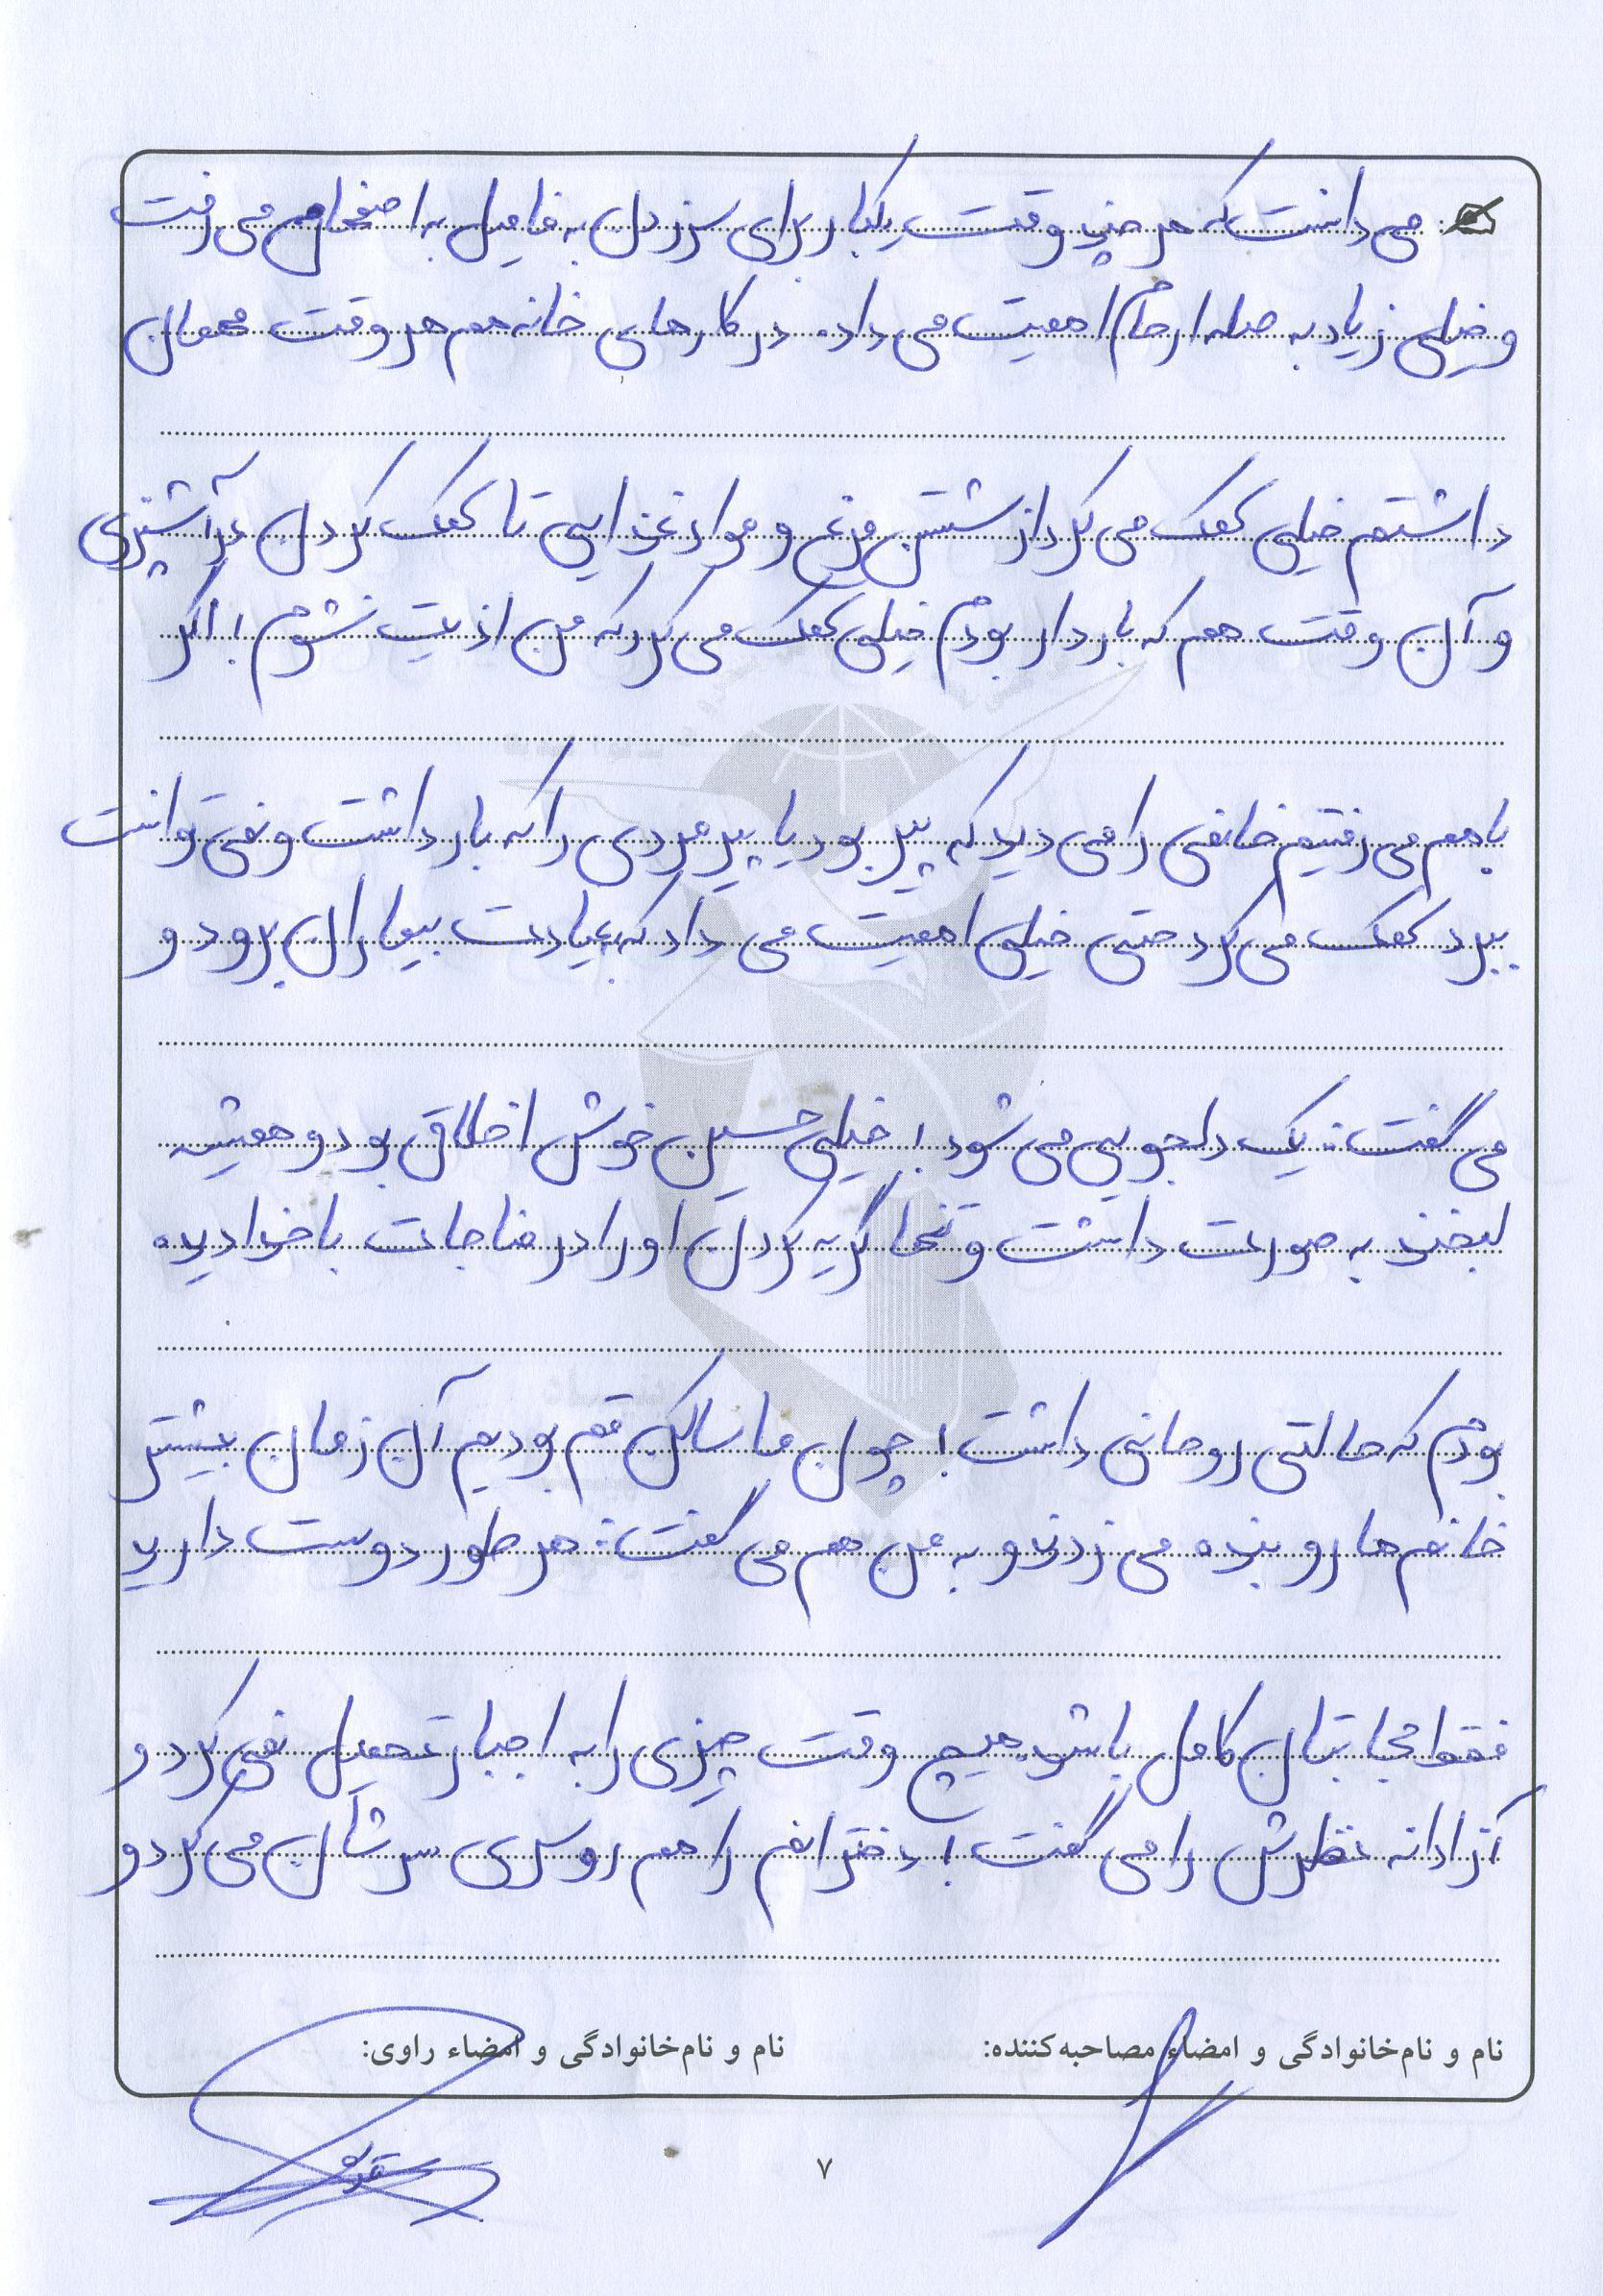 می دانست که هر چند وقت یکبار برای سر زدن به فامیل به اصفهان می رفت
و خیلی زیاد به صله ارحام اهمیت می داد. در کارهای خانه هم هر وقت مهمان
داشتم خیلی کمک می کرد از شستن مرغ و مواد غذایی تا کمک کردن در آشپزی
و آن وقت هم که باردار بودم خیلی کمک می کرد که من اذیت نشوم! اگر
با هم می رفتیم خانمی را می دید که پیر بود یا پیرمردی را که بار داشت و نمی توانست
ببرد کمک می کرد حتی خیلی اهمیت می داد که به عیادت بیماران برود و
می گفت: یک دلجویی می شود! خیلی حسین خوش اخلاق بود و همیشه
لبخند به صورت داشت و تنها گریه کردن او را در مناجات با خدا دیده
بودم که حالتی روحانی داشت! چون ما ساکن قم بودیم آن زمان بیشتر
خانم ها روبنده می زدند و به من هم می گفت: هر طور دوست دارید
فقط حجابتان کامل باشد. هیچ وقت چیزی را به اجبار تحمیل نمی کرد و
آزادانه نظرش را می گفت! دخترانم را هم روسری سرشان می کرد و
نام و نام‌خانوادگی و امضاء مصاحبه‌کننده: نام و نام‌خانوادگی و امضاء راوی:
۷